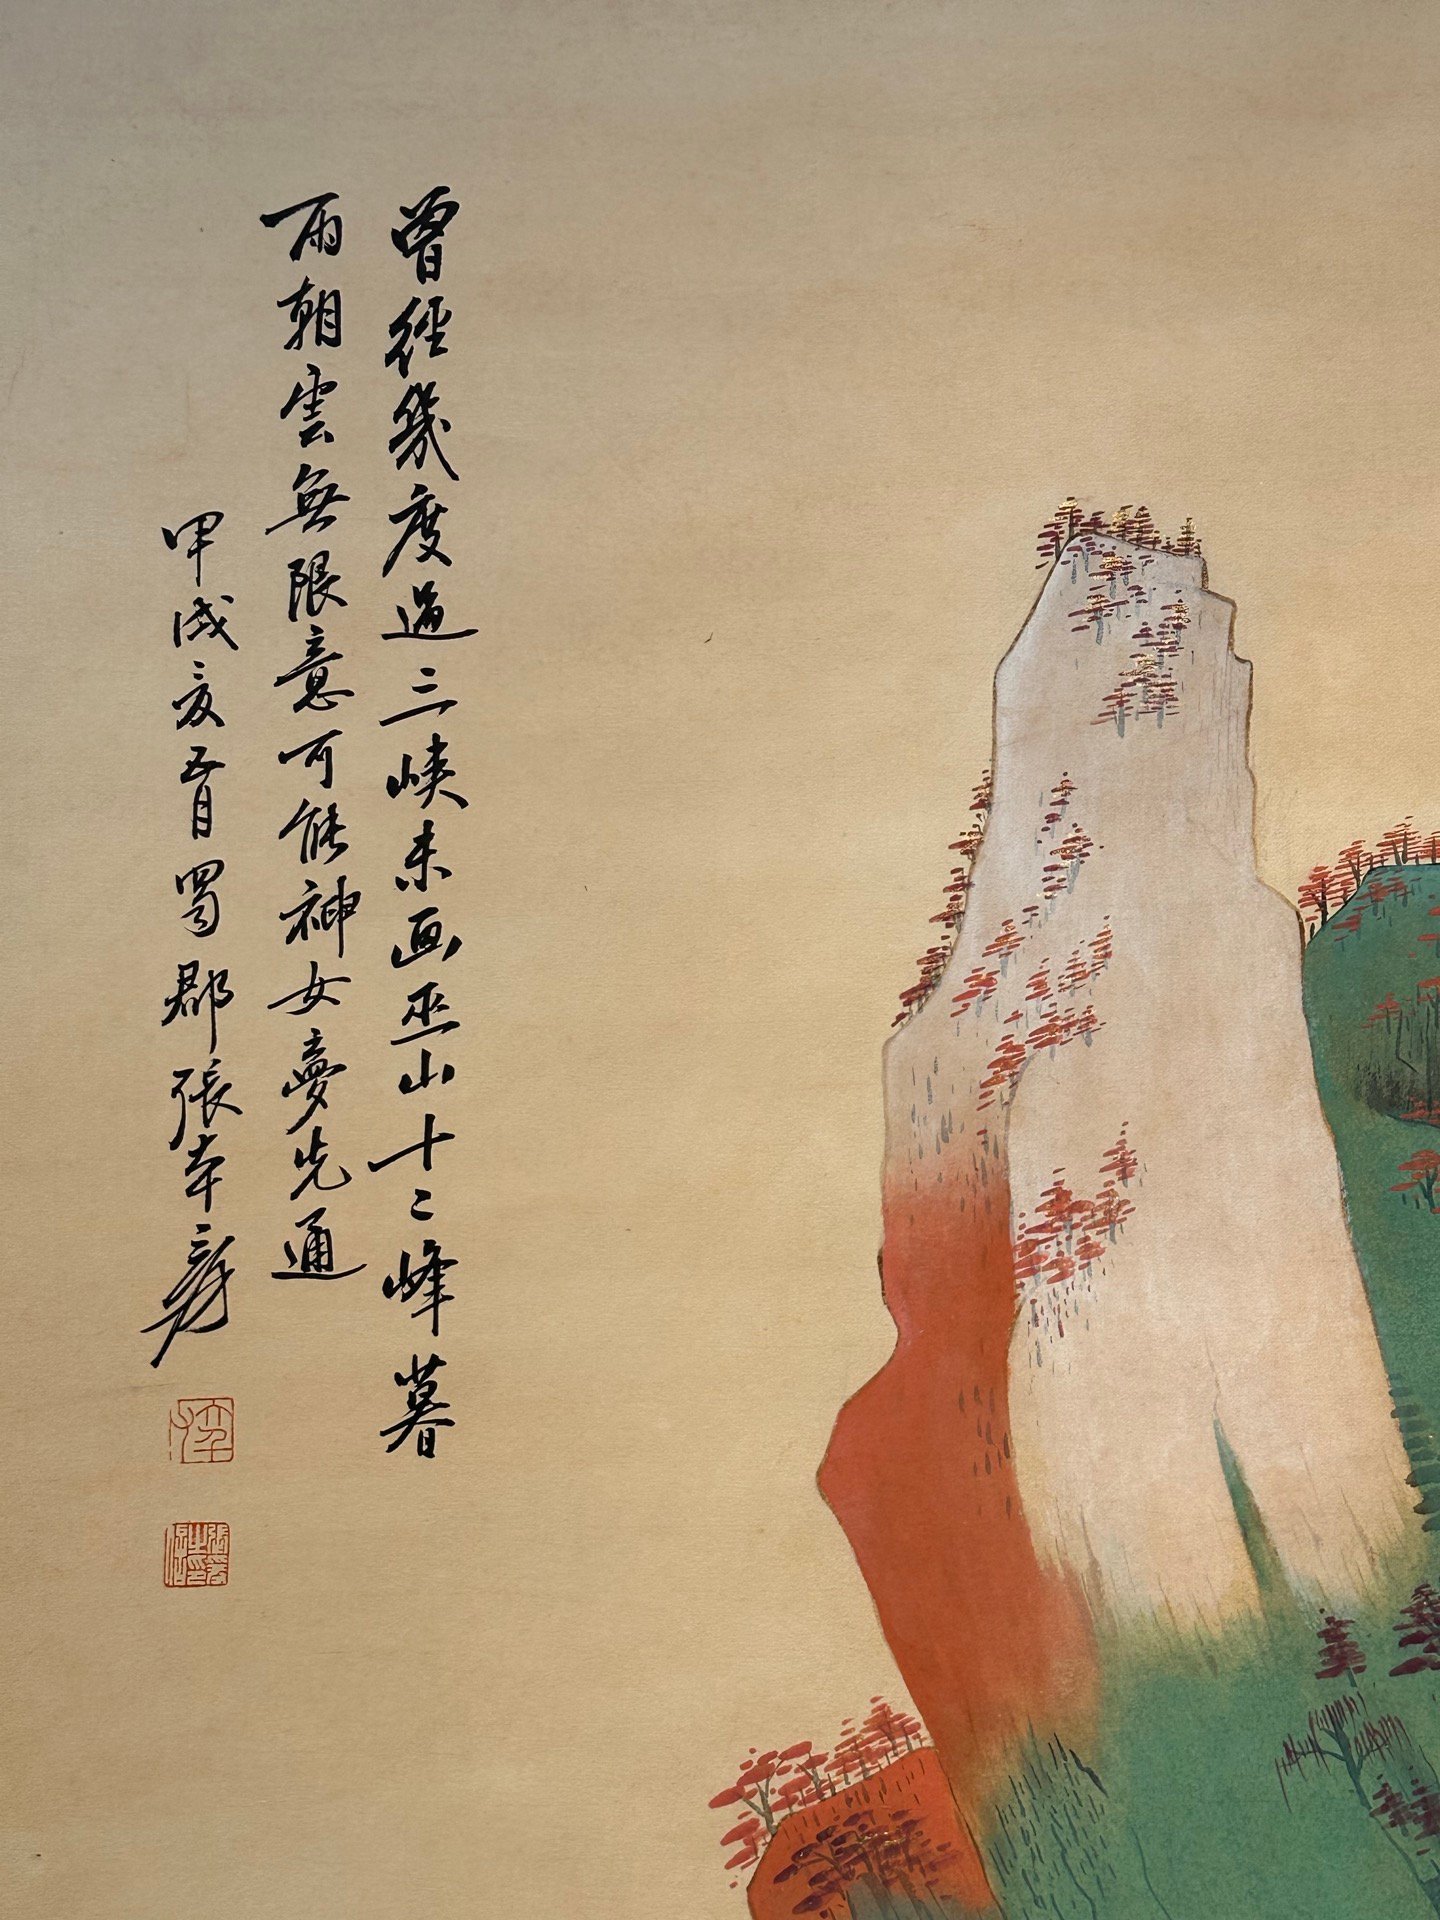 曾經幾度過三峽未画巫山十二峰暮
雨朝雲無限意可能神女夢先通
甲戌夏五月蜀郡張大千爰